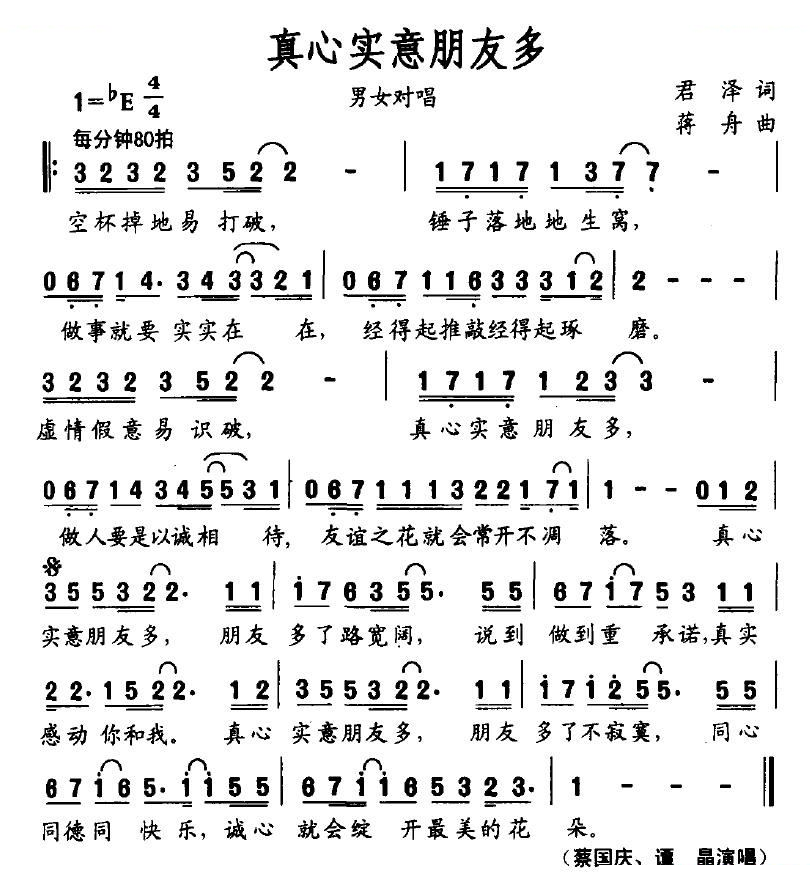 真心实意朋友多
1=♭E 4/4 男女对唱 君 泽 词
每分钟80拍 蒋 舟 曲
3 2 3 2 3 5 2 2 2 - | 1 7 1 7 1 3 7 7 7 -
空杯掉地易 打破， 锤子落地地生窝，
0 6 7 1 4. 3 4 3 3 3 2 1 | 0 6 7 1 1 6 3 3 3 3 1 2 | 2 - - -
做事就要 实实在 在， 经得起推敲经得起琢 磨。
3 2 3 2 3 5 2 2 2 - | 1 7 1 7 1 2 3 3 -
虚情假意易 识破， 真心实意朋友多，
0 6 7 1 4 3 4 5 5 5 3 1 | 0 6 7 1 1 1 3 2 2 1 7 1 | 1 - - 0 1 2
做人要是以诚相 待， 友谊之花就会常开不凋 落。 真心
3 5 5 3 2 2. 1 1 | 1 7 6 3 5 5. 5 5 | 6 7 1 7 5 3 1 1
实意朋友多， 朋友 多了路宽阔， 说到 做到重 承诺，真实
2 2. 1 5 2 2. 1 2 | 3 5 5 3 2 2. 1 1 | 1 7 1 2 5 5. 5 5
感动 你和我。 真心 实意朋友多， 朋友 多了不寂寞， 同心
6 7 1 6 5. 1 1 5 5 | 6 7 1 1 6 5 3 2 3. | 1 -
同德同 快乐，诚心 就会绽 开最美的花 朵。
（蔡国庆、谭 晶演唱）